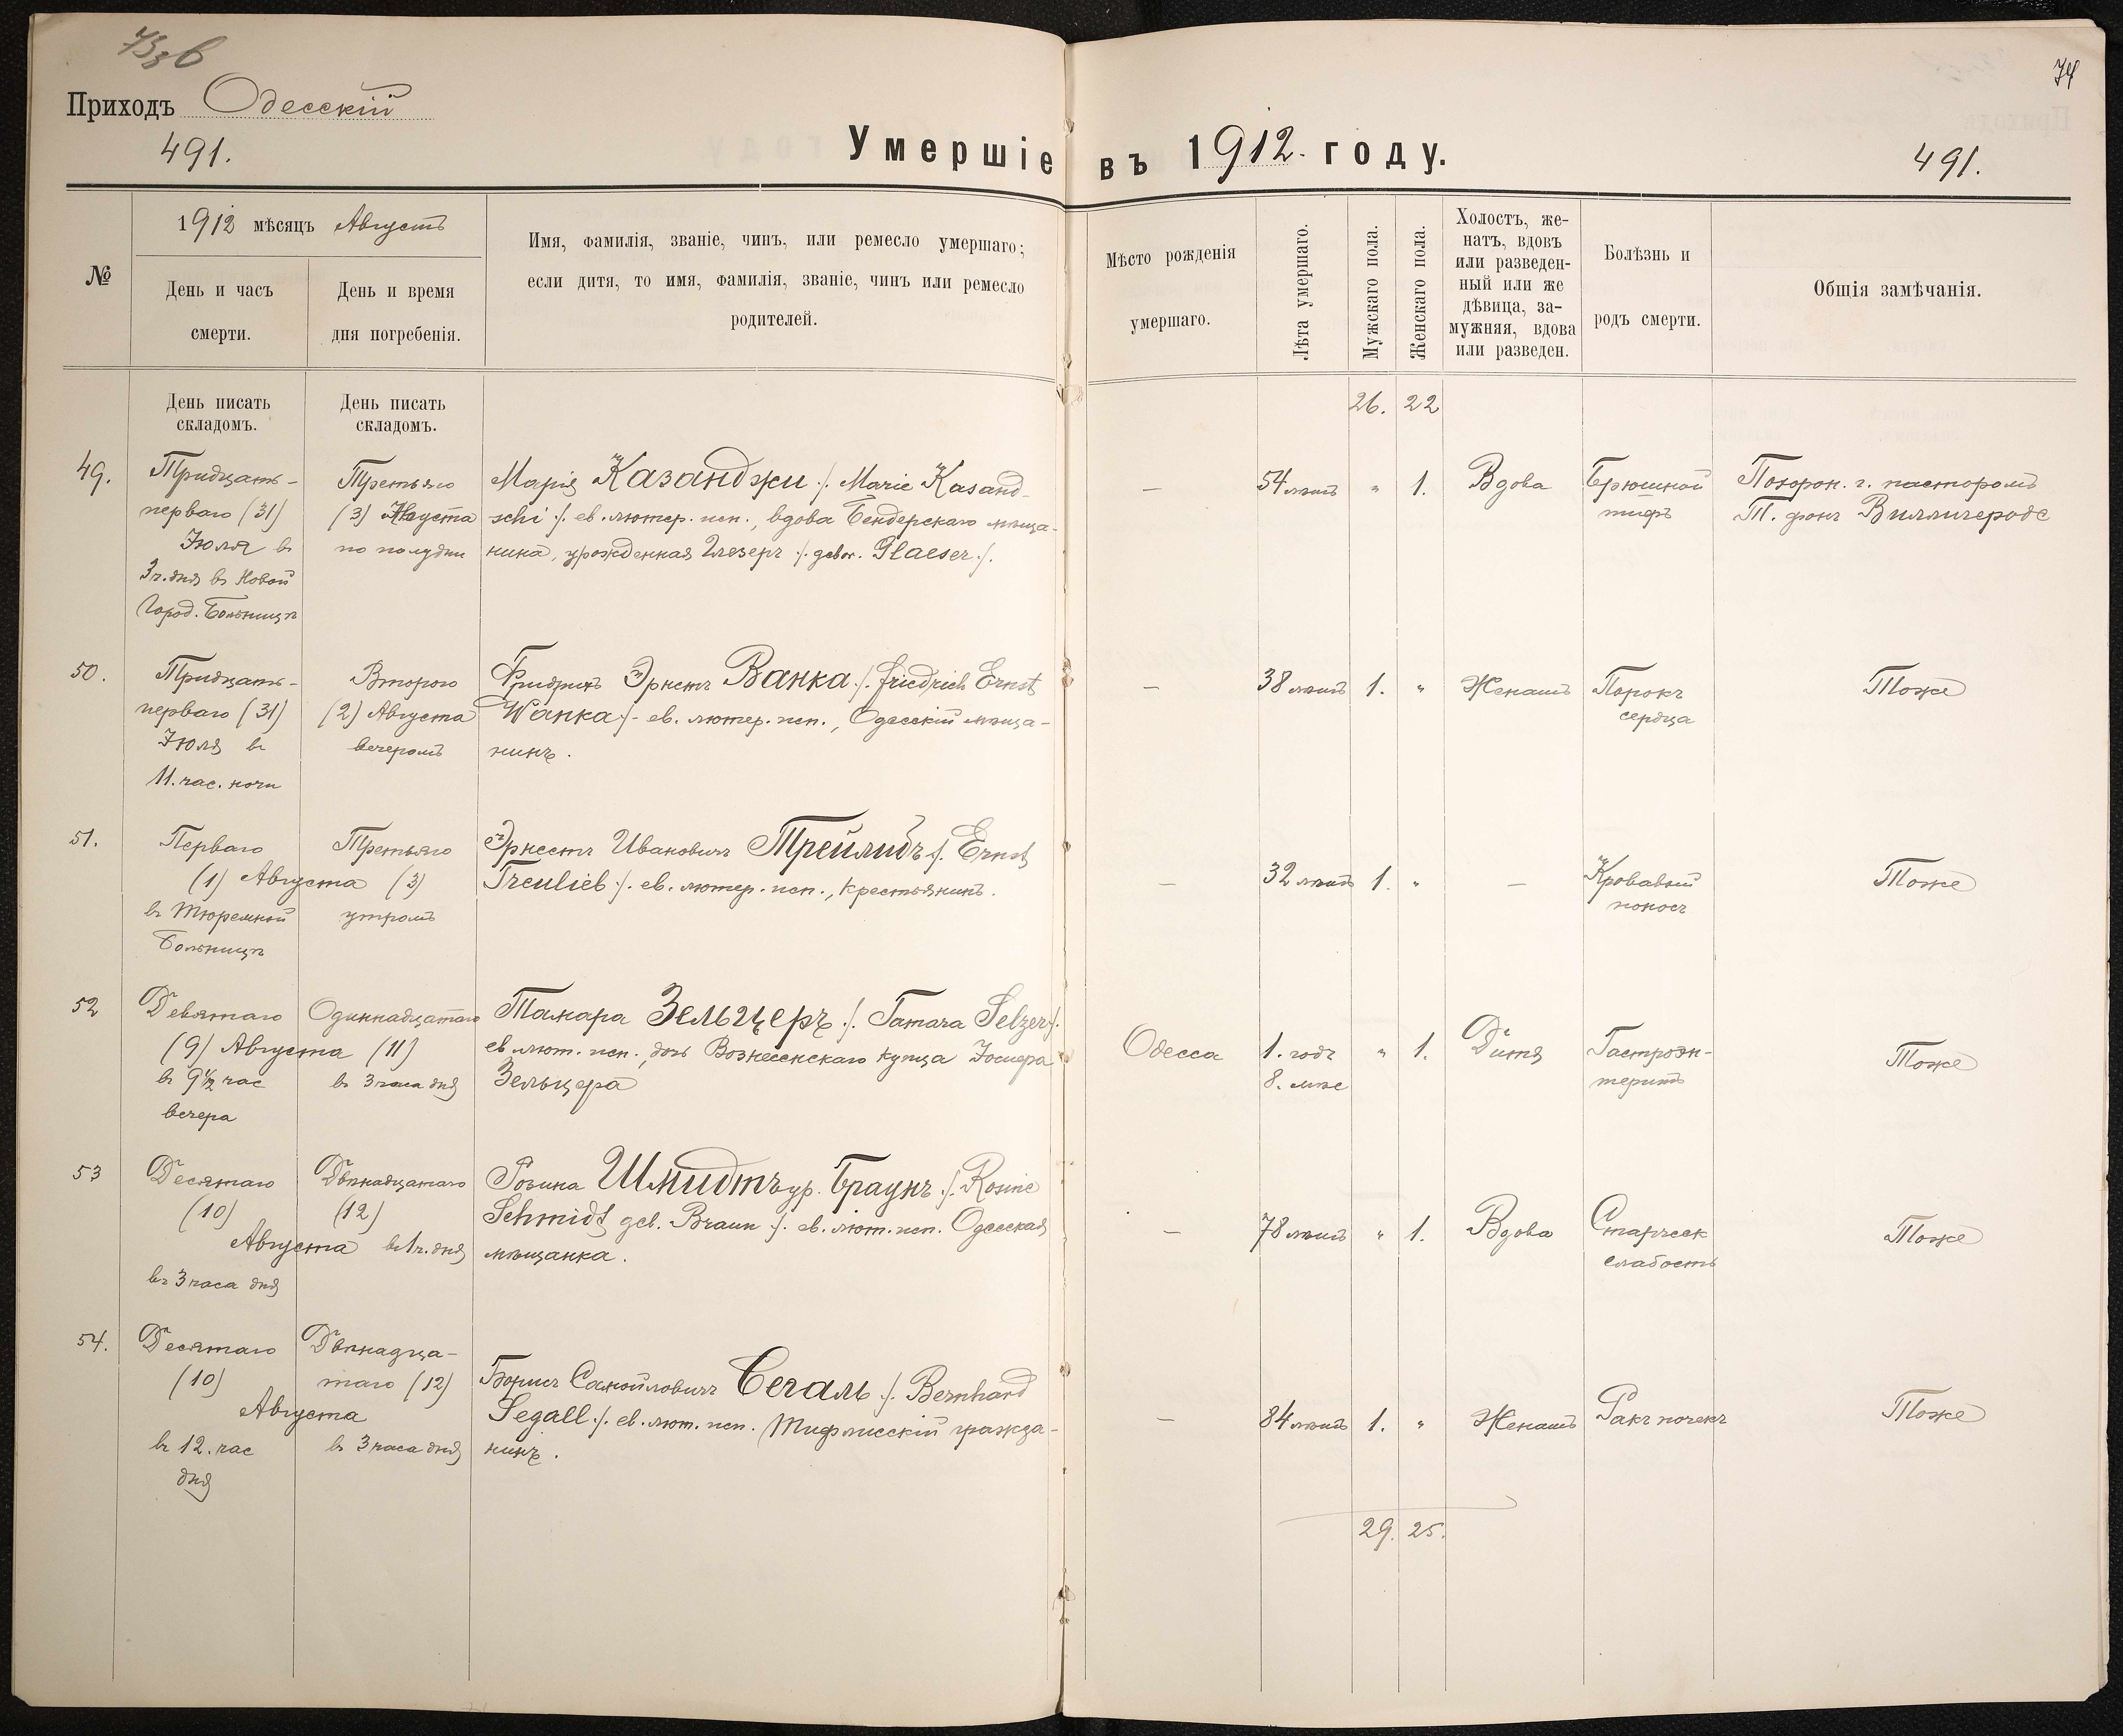 74
Приходъ Одесскій
491.
Умершіе въ 1912. году.
491.
№
1912 мѣсяцъ Августъ
День и часъ
смерти.
День и время
дня погребенія.
Имя, фамилія, званіе, чинъ, или ремесло умершаго;
если дитя, то имя, фамилія, званіе, чинъ или ремесло
родителей.
Мѣсто рожденія
умершаго.
Лѣта умершаго.
Мужскаго пола.
Женскаго пола.
Холостъ, же-
натъ, вдовъ
или разведен-
ный или же
дѣвица, за-
мужняя, вдова
или разведен.
Болѣзнь и
родъ смерти.
Общія замѣчанія.
День писать
складомъ.
День писать
складомъ.
26. 22
49.
Тридцать-
перваго (31)
Іюля въ
3 ч. дня въ Новой
Город. Больницѣ
Третьяго
(3) Августа
по полудни
Марія Казанджи ./. Marie Kasand-
schi ./. ев. лютер. исп., вдова Бендерскаго мѣща-
нина, урожденная Глезеръ ./. gebor. Glaeser ./.
—
54 лѣтъ
"
1.
Вдова
Брюшной
тифъ
Похорон. г. пасторомъ
Т. фонъ Виллигероде
50.
Тридцать-
перваго (31)
Іюля въ
11. час. ночи
Второго
(2) Августа
вечеромъ
Фридрихъ Эрнстъ Ванка ./. Friedrich Ernst
Wanka ./. ев. лютер. исп., Одесскій мѣща-
нинъ.
—
38 лѣтъ
1.
"
Женатъ
Порокъ
сердца
Тоже
51.
Перваго
(1) Августа
въ Тюремной
Больницѣ
Третьяго
(3)
утромъ
Эрнестъ Ивановичъ Трейлибъ ./. Ernst
Treulieb ./. ев. лютер. исп., крестьянинъ.
—
32 лѣтъ
1.
"
—
Кровавый
поносъ
Тоже
52
Девятаго
(9) Августа
въ 9½ час
вечера
Одиннадцатаго
(11)
въ 3 часа дня
Тамара Зельцеръ ./. Tamara Selzer ./.
ев лют. исп., дочь Вознесенскаго купца Іосифа
Зельцера
Одесса
1. годъ
8. мѣс
"
1.
Дитя
Гастроэн-
теритъ
Тоже
53
Десятаго
(10)
Августа
въ 3 часа дня
Двѣнадцатаго
(12)
въ 1 ч. дня
Розина Шмидтъ ур. Браунъ ./. Rosine
Schmidt geb. Braun ./. ев. лют. исп. Одесская
мѣщанка.
—
78 лѣтъ
"
1.
Вдова
Старческ
слабость
Тоже
54.
Десятаго
(10)
Августа
въ 12. час
дня
Двѣнадца-
таго (12)
въ 3 часа дня
Борисъ Самойловичъ Сегаль ./. Bernhard
Segall ./. ев. лют. исп. Тифлисскій гражда-
нинъ.
—
84 лѣтъ
1.
"
Женатъ
Ракъ почекъ
Тоже
29. 25.